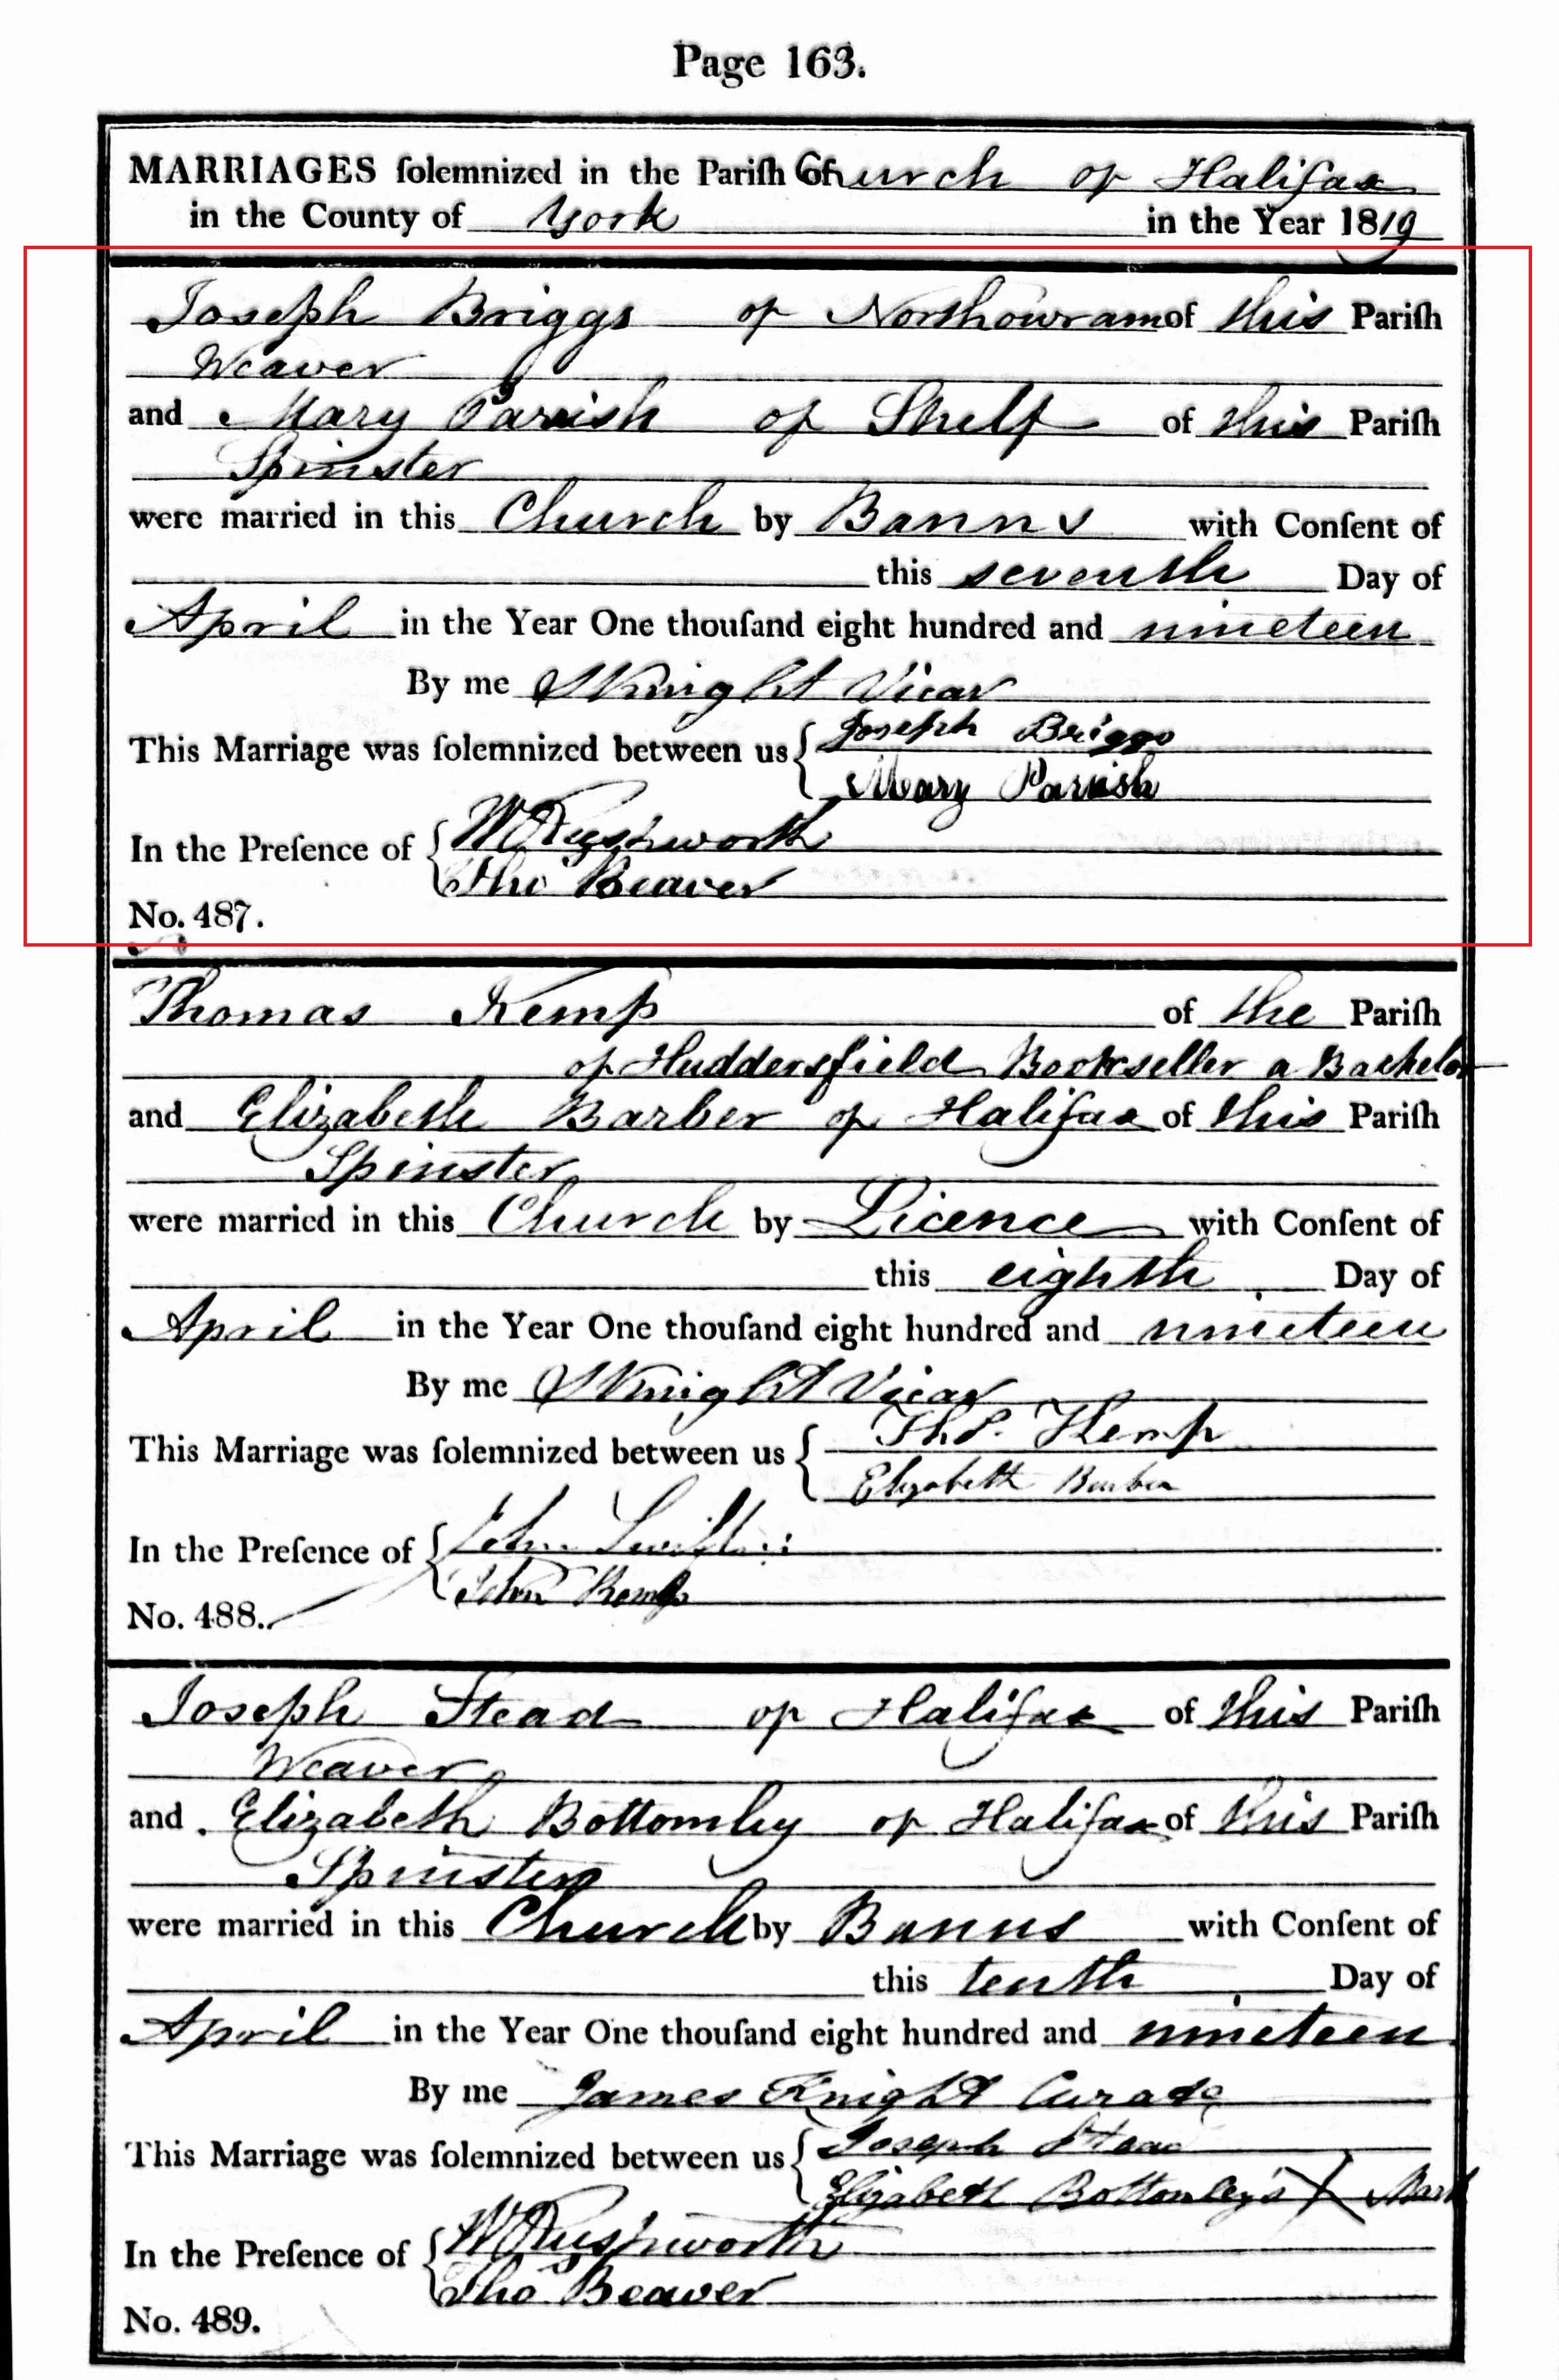 Page 163.
MARRIAGES ſolemnized in the Pariſh Church of Halifax
in the County of York in the Year 1819
Joseph Briggs of Northowram of this Pariſh
Weaver
and Mary Parish of Shelf of this Pariſh
Spinster
were married in this Church by Banns with Conſent of
this seventh Day of
April in the Year One thouſand eight hundred and nineteen
By me S Knight Vicar
This Marriage was ſolemnized between us { Joseph Briggs
Mary Parish
In the Preſence of { W Rushworth
Tho Beaver
No. 487.
Thomas Kemp of the Pariſh
of Huddersfield Bookseller a Bachelor
and Elizabeth Barber of Halifax of this Pariſh
Spinster
were married in this Church by Licence with Conſent of
this eighth Day of
April in the Year One thouſand eight hundred and nineteen
By me S Knight Vicar
This Marriage was ſolemnized between us { Thos. Kemp
Elizabeth Barber
In the Preſence of { John
John Kemp
No. 488.
Joseph Stead of Halifax of this Pariſh
Weaver
and Elizabeth Bottomley of Halifax of this Pariſh
Spinster
were married in this Church by Banns with Conſent of
this tenth Day of
April in the Year One thouſand eight hundred and nineteen
By me James Knight Curate
This Marriage was ſolemnized between us { Joseph Stead
Elizabeth Bottomley's X Mark
In the Preſence of { W Rushworth
Tho Beaver
No. 489.